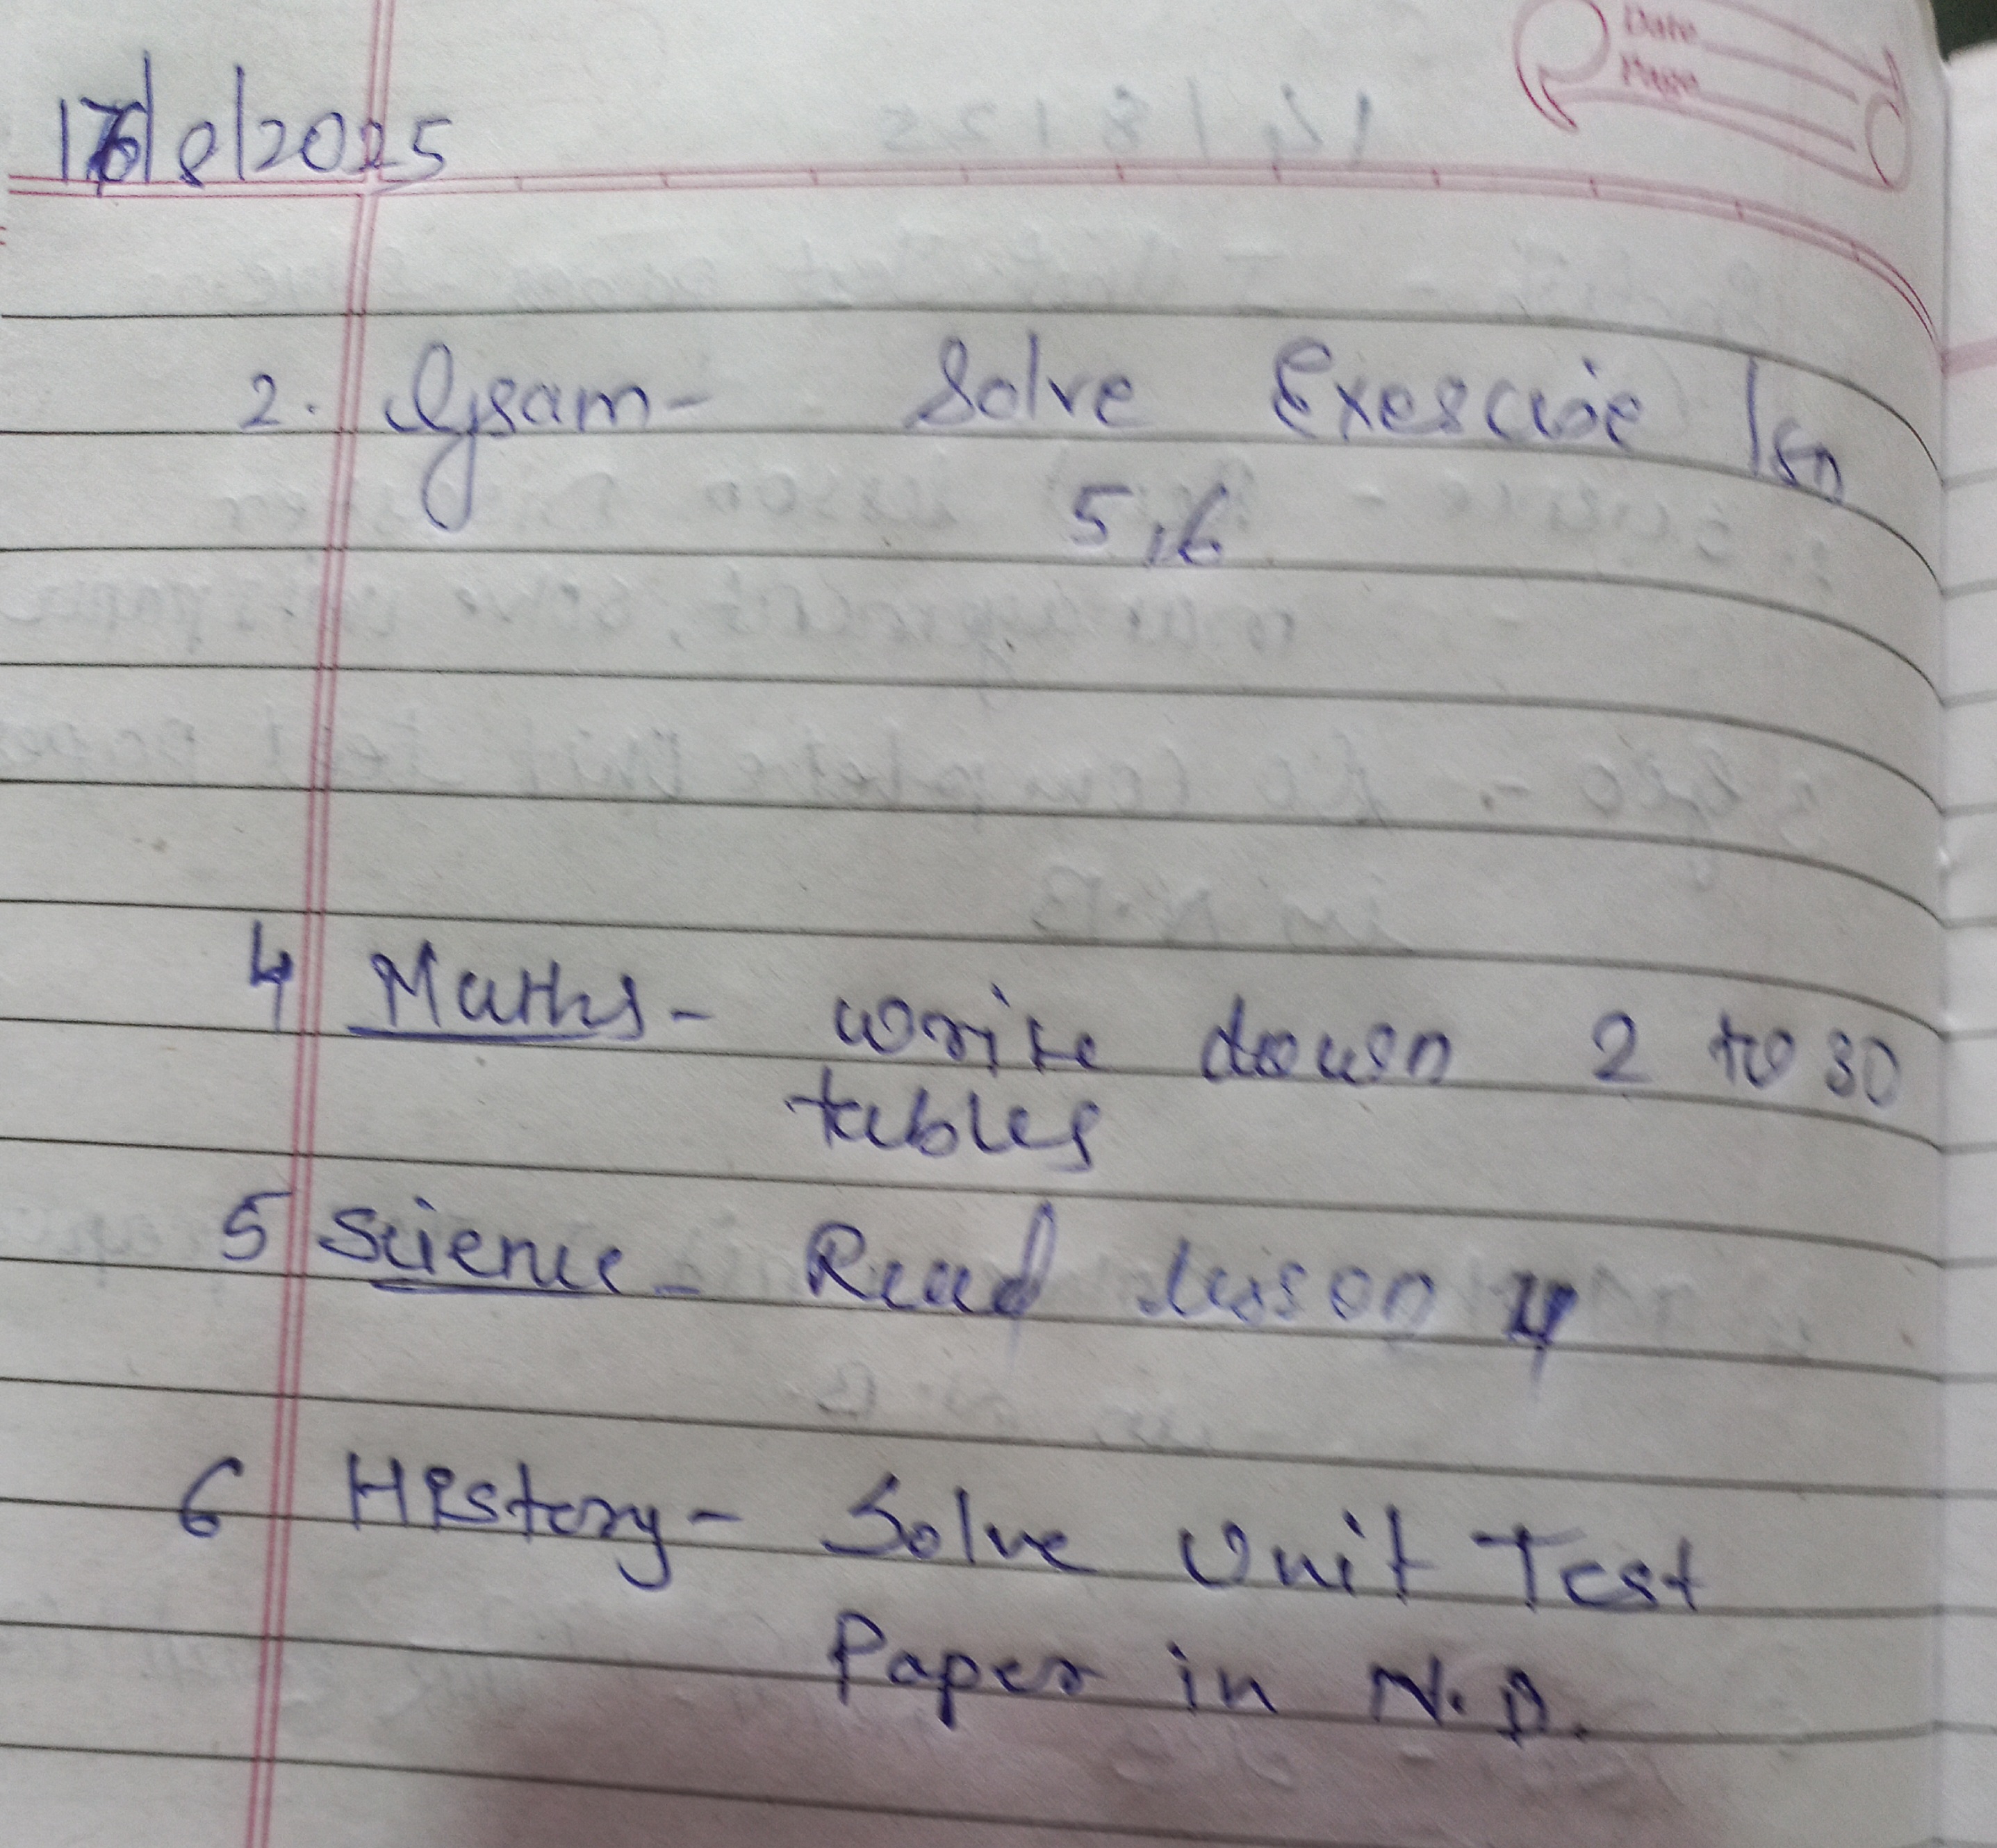 Date
Page
16/8/2025
2. Gram- Solve Exercise lsn
5,6
4 Maths- write down 2 to 30
tables
5 Science- Read lesson 4
6 History- Solve Unit Test
Paper in N.B.